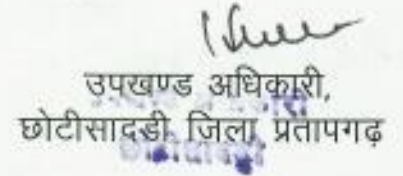 उपखण्ड अधिकारी,
छोटीसादडी जिला प्रतापगढ़